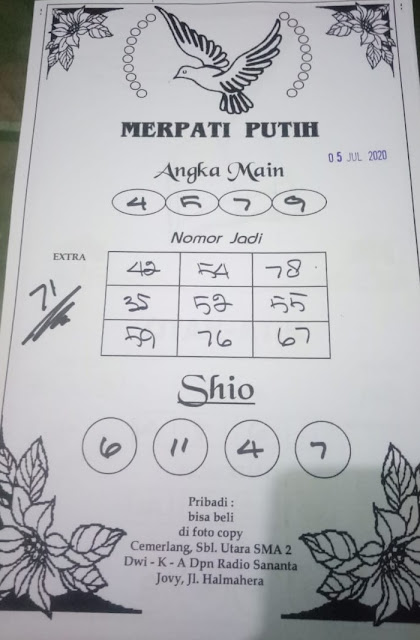 MERPATI PUTIH
05 JUL 2020
Angka Main
4 5 7 9
Nomor Jadi
EXTRA
71
42 54 78
35 52 55
59 76 67
Shio
6 11 4 7
Pribadi :
bisa beli
di foto copy
Cemerlang, Sbl. Utara SMA 2
Dwi - K - A Dpn Radio Sananta
Jovy, Jl. Halmahera